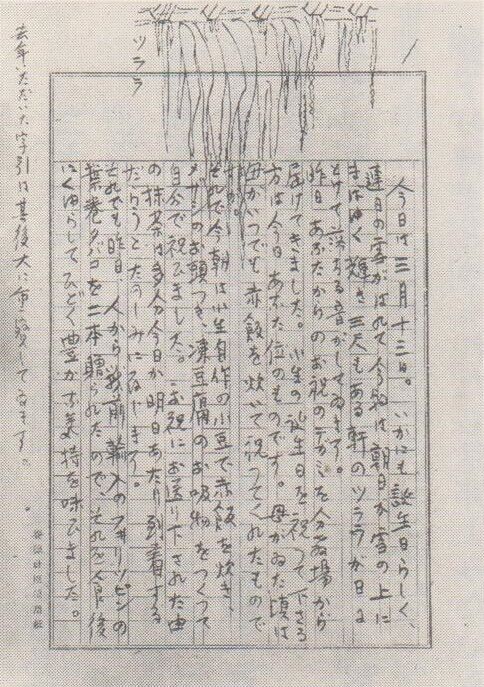 ツララ
今日は三月十三日。いかにも誕生日らしく、
連日の雪がはれて今朝は朝日が雪の上に
まばゆく輝き三尺もある軒のツララが日に
とけて落ちる音がしてゐます。
昨日あなたからのお祝のテガミを分教場から
届けてきました。小生の誕生日を祝つて下さる
方は今日あなた位のものです。母がゐた頃は
母がいつでも赤飯を炊いて祝つてくれたもので
すが。
それで今朝は小生自作の小豆で赤飯を炊き
メザシのお頭つき、凍豆腐のお吸物をつくつて
自分で祝ひました。お祝にお送り下された由
の抹茶は多分今日か明日あたり到着する
だらうとたのしみに存じます。
それでも昨日、人から戦前輸入のフヰリツピンの
葉巻タバコを二本贈られたので、それを食後
にくゆらしてひどく豊かな気持を味ひました。
去年いただいた字引は其後大に重寳して居ます。